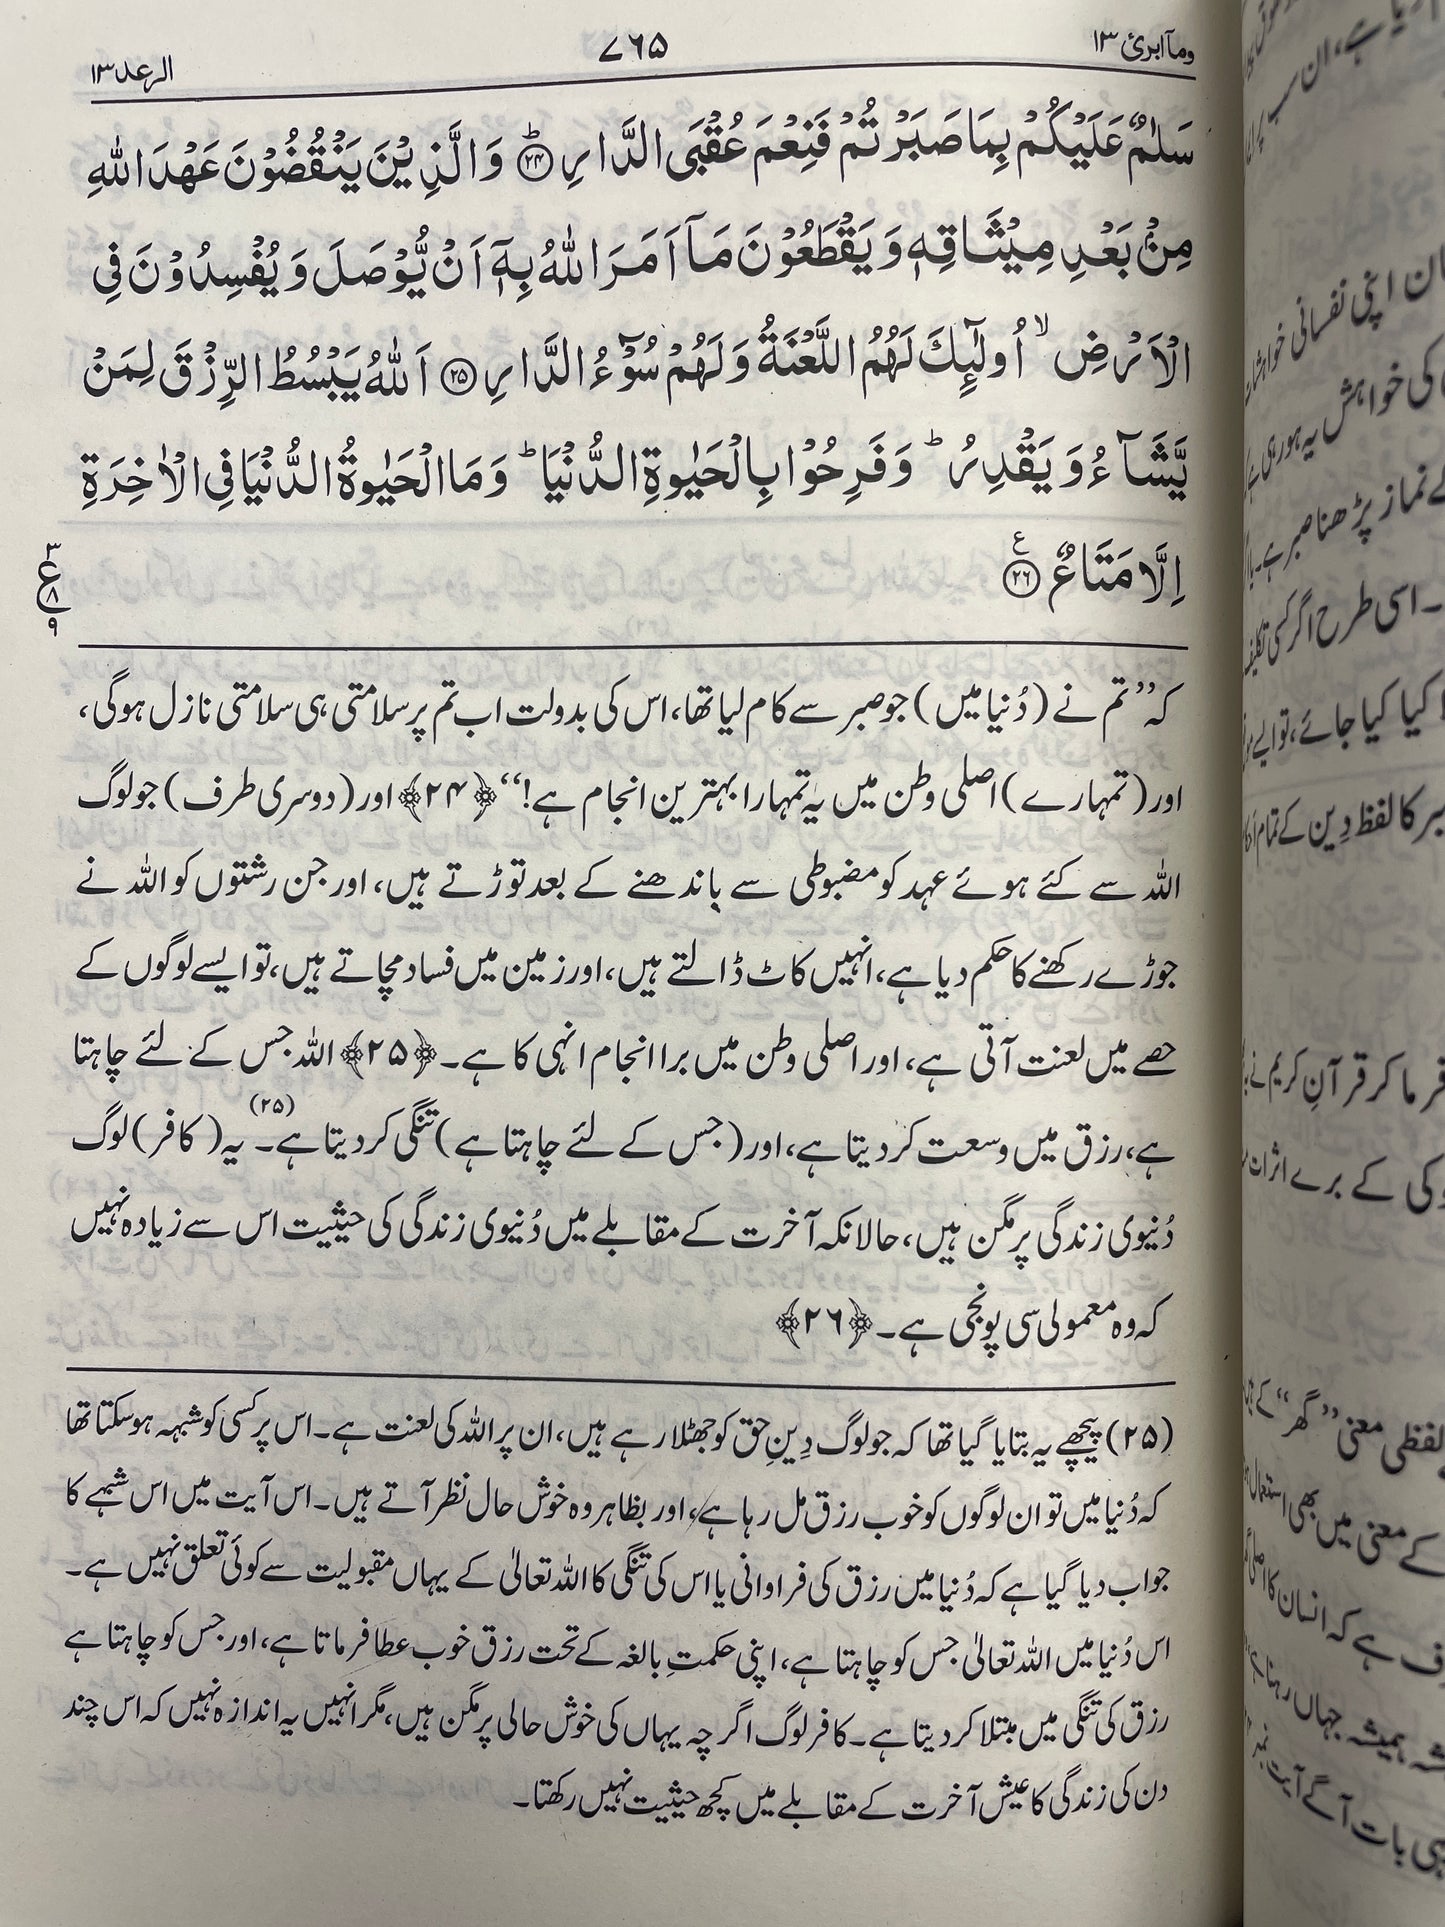 ومآ ابرئ ۱۳
۷۶۵
الرعد ۱۳
سَلٰمٌ عَلَيْكُمْ بِمَا صَبَرْتُمْ فَنِعْمَ عُقْبَى الدَّارِ ؕ ﴿۲۴﴾ وَالَّذِيْنَ يَنْقُضُوْنَ عَهْدَ اللّٰهِ
مِنْۢ بَعْدِ مِيْثَاقِهٖ وَيَقْطَعُوْنَ مَاۤ اَمَرَ اللّٰهُ بِهٖۤ اَنْ يُّوْصَلَ وَيُفْسِدُوْنَ فِى
الْاَرْضِ ۙ اُولٰٓئِكَ لَهُمُ اللَّعْنَةُ وَلَهُمْ سُوْٓءُ الدَّارِ ﴿۲۵﴾ اَللّٰهُ يَبْسُطُ الرِّزْقَ لِمَنْ
يَّشَآءُ وَيَقْدِرُ ؕ وَفَرِحُوْا بِالْحَيٰوةِ الدُّنْيَا ؕ وَمَا الْحَيٰوةُ الدُّنْيَا فِى الْاٰخِرَةِ
اِلَّا مَتَاعٌ ﴿۲۶﴾ ع
۳
ع
۸
۹
کہ ”تم نے (دُنیا میں) جو صبر سے کام لیا تھا، اس کی بدولت اب تم پر سلامتی ہی سلامتی نازل ہوگی،
اور (تمہارے) اصلی وطن میں یہ تمہارا بہترین انجام ہے!“ ﴿۲۴﴾ اور (دوسری طرف) جو لوگ
اللہ سے کئے ہوئے عہد کو مضبوطی سے باندھنے کے بعد توڑتے ہیں، اور جن رشتوں کو اللہ نے
جوڑے رکھنے کا حکم دیا ہے، انہیں کاٹ ڈالتے ہیں، اور زمین میں فساد مچاتے ہیں، تو ایسے لوگوں کے
حصے میں لعنت آتی ہے، اور اصلی وطن میں برا انجام انہی کا ہے۔ ﴿۲۵﴾ اللہ جس کے لئے چاہتا
ہے، رزق میں وسعت کردیتا ہے، اور (جس کے لئے چاہتا ہے) تنگی کردیتا ہے۔(۲۵) یہ (کافر) لوگ
دُنیوی زندگی پر مگن ہیں، حالانکہ آخرت کے مقابلے میں دُنیوی زندگی کی حیثیت اس سے زیادہ نہیں
کہ وہ معمولی سی پونجی ہے۔ ﴿۲۶﴾
(۲۵) پیچھے یہ بتایا گیا تھا کہ جو لوگ دِینِ حق کو جھٹلا رہے ہیں، ان پر اللہ کی لعنت ہے۔ اس پر کسی کو شبہہ ہوسکتا تھا
کہ دُنیا میں تو ان لوگوں کو خوب رزق مل رہا ہے، اور بظاہر وہ خوش حال نظر آتے ہیں۔ اس آیت میں اس شبہے کا
جواب دیا گیا ہے کہ دُنیا میں رزق کی فراوانی یا اس کی تنگی کا اللہ تعالیٰ کے یہاں مقبولیت سے کوئی تعلق نہیں ہے۔
اس دُنیا میں اللہ تعالیٰ جس کو چاہتا ہے، اپنی حکمتِ بالغہ کے تحت رزق خوب عطا فرماتا ہے، اور جس کو چاہتا ہے
رزق کی تنگی میں مبتلا کردیتا ہے۔ کافر لوگ اگرچہ یہاں کی خوش حالی پر مگن ہیں، مگر انہیں یہ اندازہ نہیں کہ اس چند
دن کی زندگی کا عیش آخرت کے مقابلے میں کچھ حیثیت نہیں رکھتا۔
ان اپنی نفسانی
کی خواہش یہ ہو رہی
نماز پڑھنا صبر ہے۔
۔ اسی طرح اگر کسی
کیا کیا جائے، تو ایسے
کا لفظ دِین کے تمام
فرما کر قرآنِ کریم نے
کے برے اثرات
لفظی معنی ”گھر“ کے
کے معنی میں بھی استعمال
ہے کہ انسان کا اصلی
ہمیشہ جہاں رہنا
بات آگے آیت نمبر